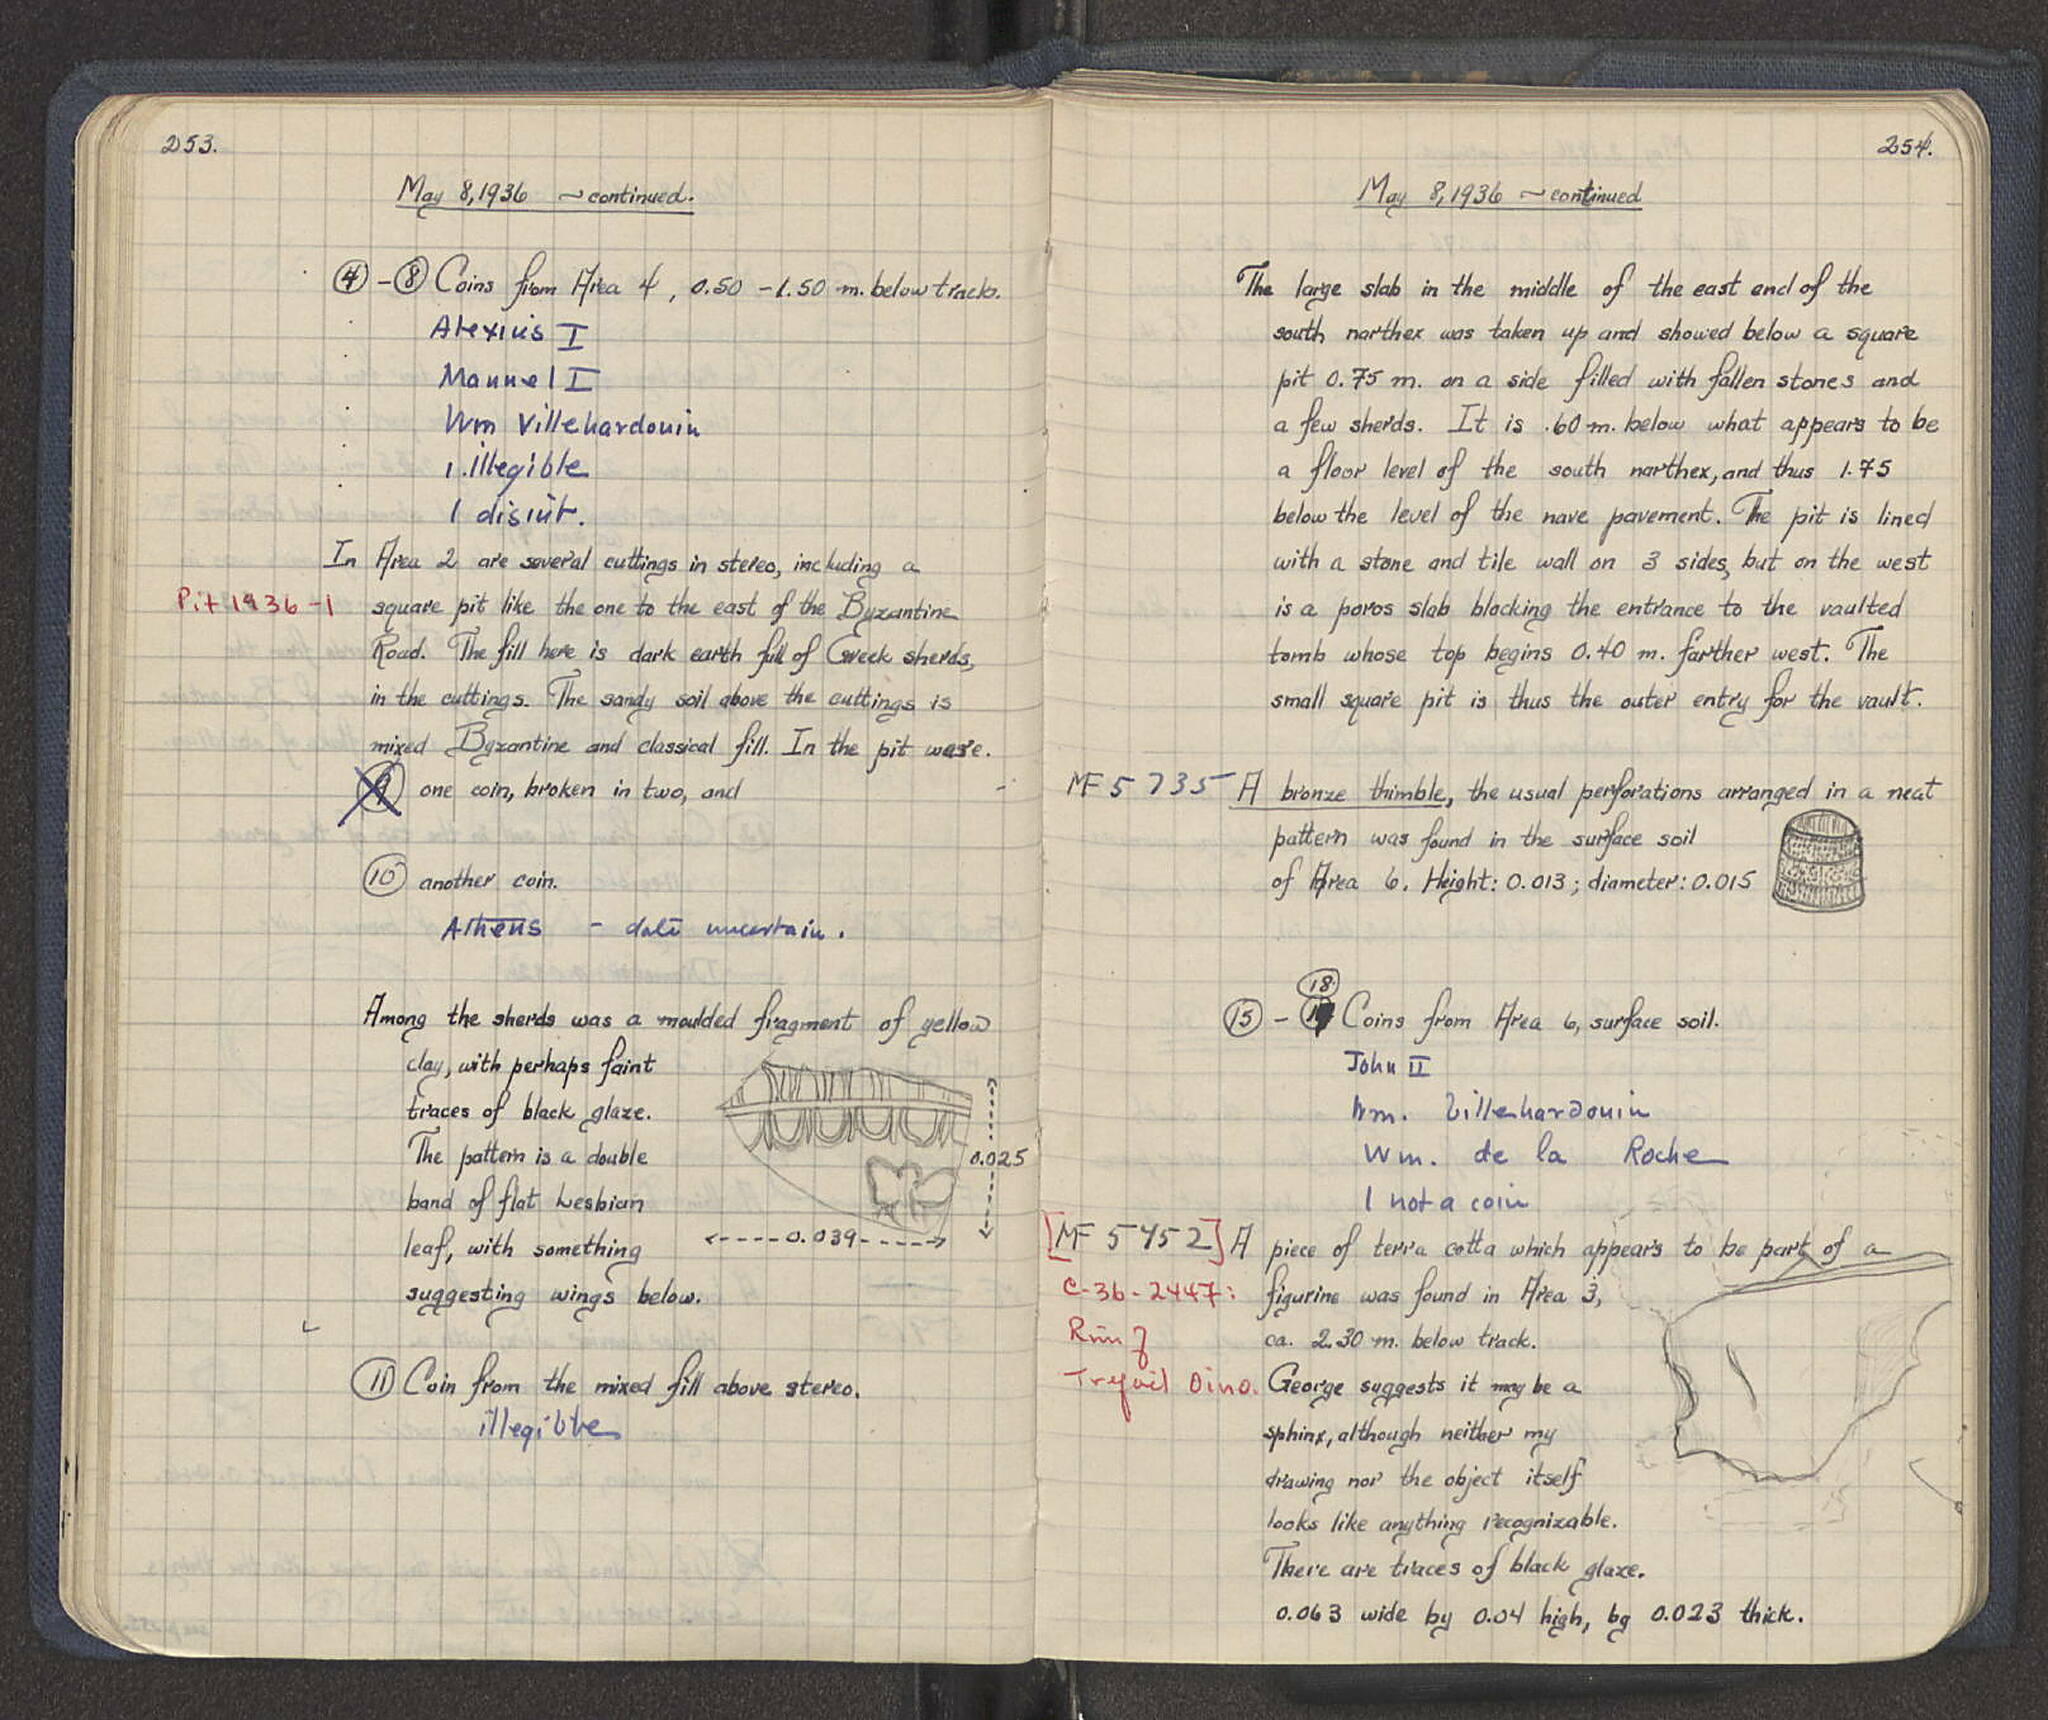 253.
May 8, 1936 ~ continued.
④ - ⑧ Coins from Area 4, 0.50 - 1.50 m. below track.
Alexius I
Manuel I
Wm Villehardouin
1 illegible
1 disint.
In Area 2 are several cuttings in stereo, including a
Pit 1936-1 square pit like the one to the east of the Byzantine
Road. The fill here is dark earth full of Greek sherds,
in the cuttings. The sandy soil above the cuttings is
mixed Byzantine and classical fill. In the pit were.
⑨ one coin, broken in two, and
⑩ another coin.
Athens - date uncertain.
Among the sherds was a moulded fragment of yellow
clay, with perhaps faint
traces of black glaze.
The pattern is a double
0.025
band of flat Lesbian
leaf, with something
0.039
suggesting wings below.
⑪ Coin from the mixed fill above stereo.
illegible
254.
May 8, 1936 ~ continued
The large slab in the middle of the east end of the
south narthex was taken up and showed below a square
pit 0.75 m. on a side filled with fallen stones and
a few sherds. It is .60 m. below what appears to be
a floor level of the south narthex, and thus 1.75
below the level of the nave pavement. The pit is lined
with a stone and tile wall on 3 sides, but on the west
is a poros slab blocking the entrance to the vaulted
tomb whose top begins 0.40 m. farther west. The
small square pit is thus the outer entry for the vault.
MF 5735 A bronze thimble, the usual perforations arranged in a neat
pattern was found in the surface soil
of Area 6. Height: 0.013; diameter: 0.015
⑱
⑮ - Coins from Area 6, surface soil.
John II
Wm. Villehardouin
Wm. de la Roche
1 not a coin
[MF 5452] A piece of terra cotta which appears to be part of a
C-36-2447: figurine was found in Area 3,
Rim of ca. 2.30 m. below track.
Trefoil Oino. George suggests it may be a
sphinx, although neither my
drawing nor the object itself
looks like anything recognizable.
There are traces of black glaze.
0.063 wide by 0.04 high, by 0.023 thick.